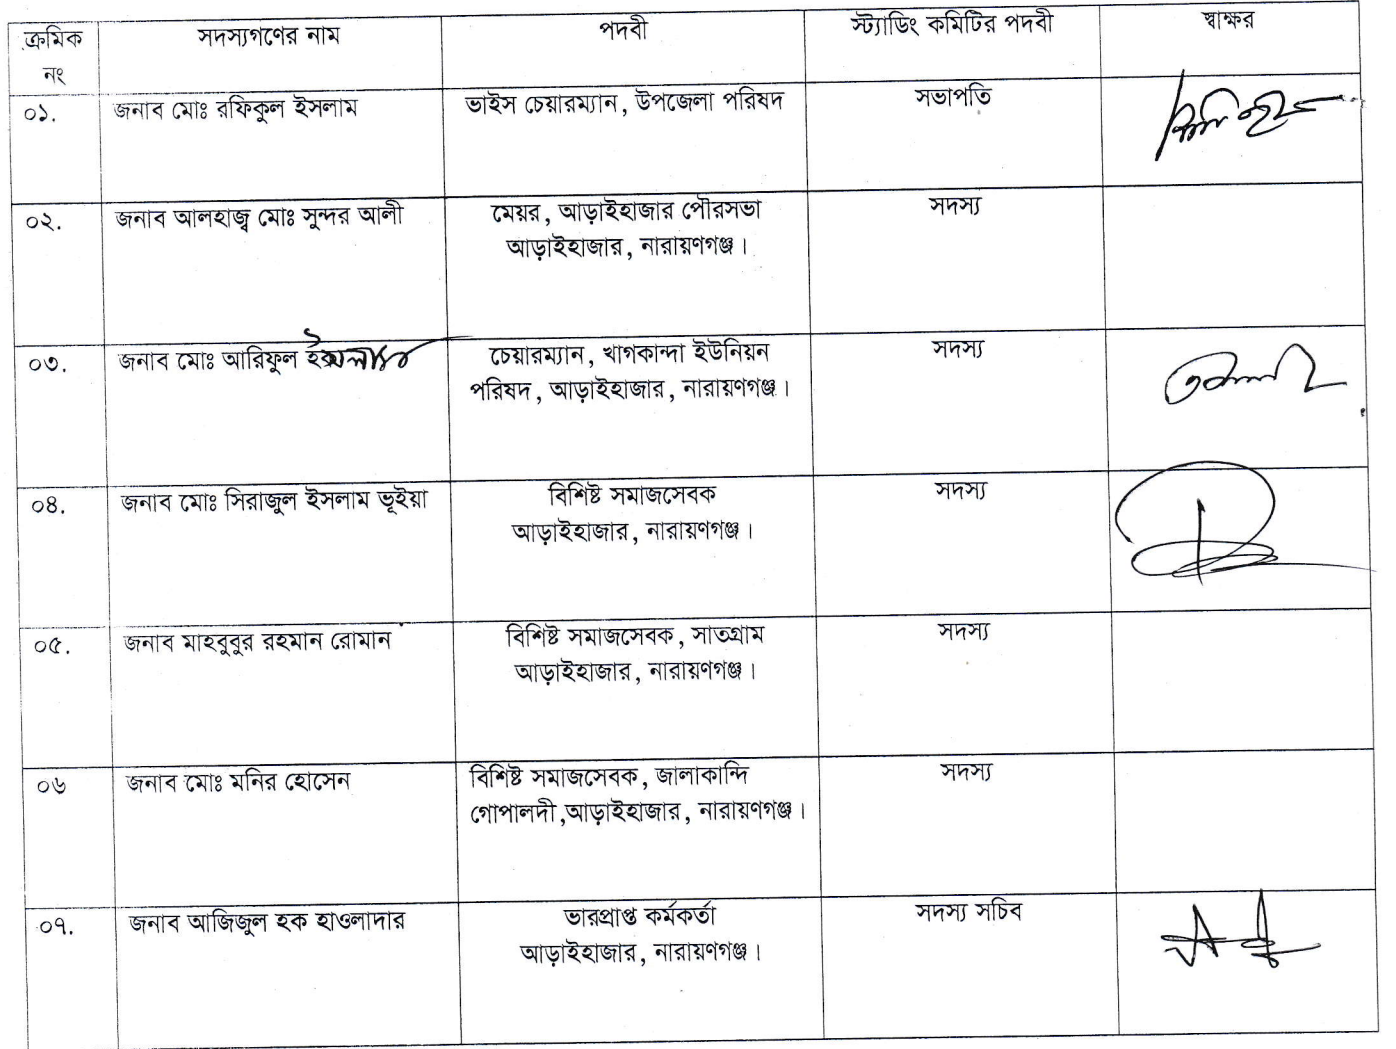 ক্রমিক নং সদস্যগণের নাম পদবী স্ট্যাডিং কমিটির পদবী স্বাক্ষর
০১. জনাব মোঃ রফিকুল ইসলাম ভাইস চেয়ারম্যান, উপজেলা পরিষদ সভাপতি
০২. জনাব আলহাজ্ব মোঃ সুন্দর আলী মেয়র, আড়াইহাজার পৌরসভা সদস্য
আড়াইহাজার, নারায়ণগঞ্জ।
০৩. জনাব মোঃ আরিফুল চেয়ারম্যান, খাগকান্দা ইউনিয়ন সদস্য
পরিষদ, আড়াইহাজার, নারায়ণগঞ্জ।
০৪. জনাব মোঃ সিরাজুল ইসলাম ভূইয়া বিশিষ্ট সমাজসেবক সদস্য
আড়াইহাজার, নারায়ণগঞ্জ।
০৫. জনাব মাহবুবুর রহমান রোমান বিশিষ্ট সমাজসেবক, সাতগ্রাম সদস্য
আড়াইহাজার, নারায়ণগঞ্জ।
০৬ জনাব মোঃ মনির হোসেন বিশিষ্ট সমাজসেবক, জালাকান্দি সদস্য
গোপালদী,আড়াইহাজার, নারায়ণগঞ্জ।
০৭. জনাব আজিজুল হক হাওলাদার ভারপ্রাপ্ত কর্মকর্তা সদস্য সচিব
আড়াইহাজার, নারায়ণগঞ্জ।